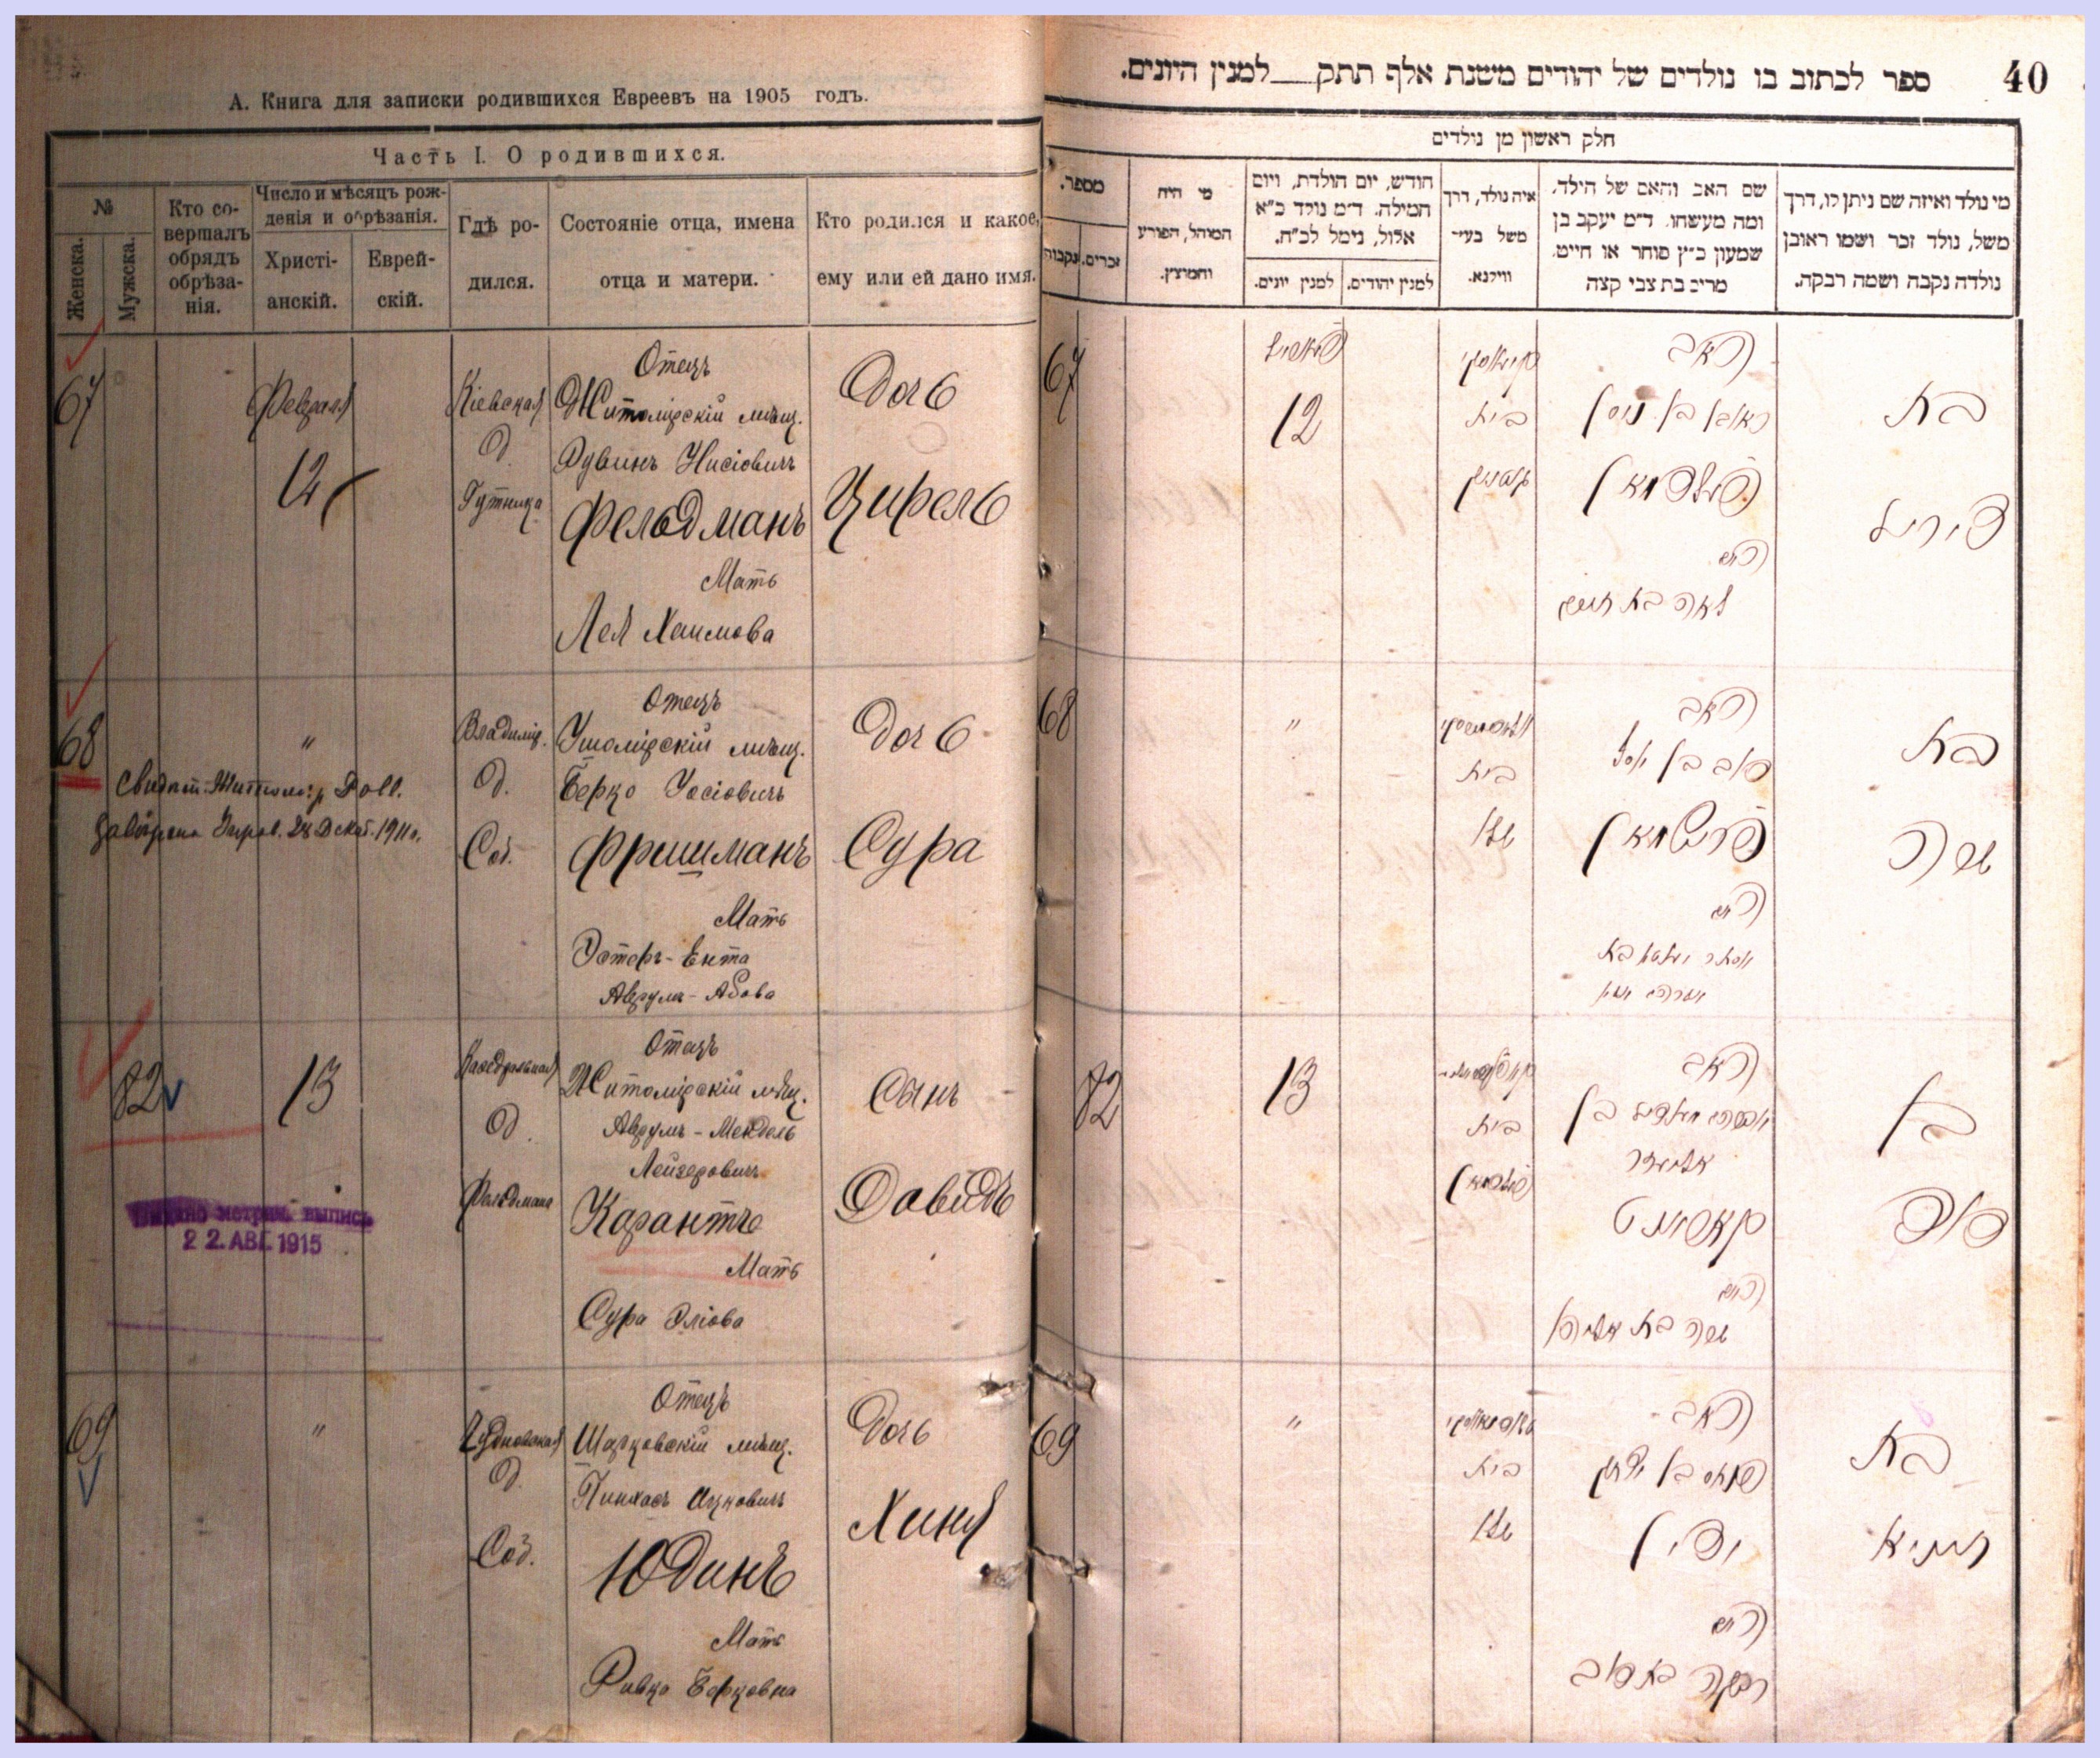 А. Книга для записки родившихся Евреевъ на 1905 годъ.
Часть I. О родившихся.
№
Женска.
Мужска.
Кто со-
вершалъ
обрядъ
обрѣза-
нія.
Число и мѣсяцъ рож-
денія и обрѣзанія.
Христі-
анскій.
Еврей-
скій.
Гдѣ ро-
дился.
Состояніе отца, имена
отца и матери.
Кто родился и какое
ему или ей дано имя.
67
Февраля
12
Кіевская
д.
Гутника
Отецъ
Житомірскій мѣщ.
Рувинъ Нисіовичъ
Фельдманъ
Мать
Лея Хаимова
Дочь
Цирель
68
"
Свидѣт.
28 Декаб. 1911 г.
Владимір.
д.
Соб.
Отецъ
Ушомірскій мѣщ.
Берко Іосіовичъ
Фришманъ
Мать
Эстеръ-Ента
Аврумъ-Абова
Дочь
Сура
82
13
Каѳедральная
д.
Фельдмана
Отецъ
Житомірскій мѣщ.
Аврумъ-Мендель
Лейзеровичъ
Карантъ
Мать
Сура Эліова
Сынъ
Давидъ
выпись
22. АВГ. 1915
69
"
Чудновская
д.
Соб.
Отецъ
мѣщ.
Пинхасъ Ицковичъ
Юдинъ
Мать
Ривка Берковна
Дочь
Хиня
40
ספר לכתוב בו נולדים של יהודים משנת אלף תתק למנין היונים.
חלק ראשון מן נולדים
מספר.
נקבות
זכרים.
מי היה
המוהל, הפורע
והמוצץ.
חודש, יום הולדת, ויום
המילה. ד"מ נולד כ"א
אלול, נימל לכ"ח.
למנין יונים.
למנין יהודים.
איה נולד, דרך
משל בעיר
ווילנא.
שם האב והאם של הילד,
ומה מעשהו. ד"מ יעקב בן
שמעון כ"ץ סוחר או חייט,
מריב בת צבי קצה
מי נולד ואיזה שם ניתן לו, דרך
משל, נולד זכר ושמו ראובן
נולדה נקבה ושמה רבקה.
67
12
בית
האב
ראובן בן ניסן
פעלדמאן
האם
לאה בת חיים
בת
ציריל
68
"
בית
שלו
האב
דוב בן יוסף
פרישמאן
האם
בת
שרה
82
13
בית
פעלדמאן
האב
אברהם מענדיל בן
אליעזר
קאראנט
האם
שרה בת אליהו
בן
דוד
69
"
בית
שלו
האב
פנחס בן יצחק
יודין
האם
רבקה בת דוב
בת
חיניא